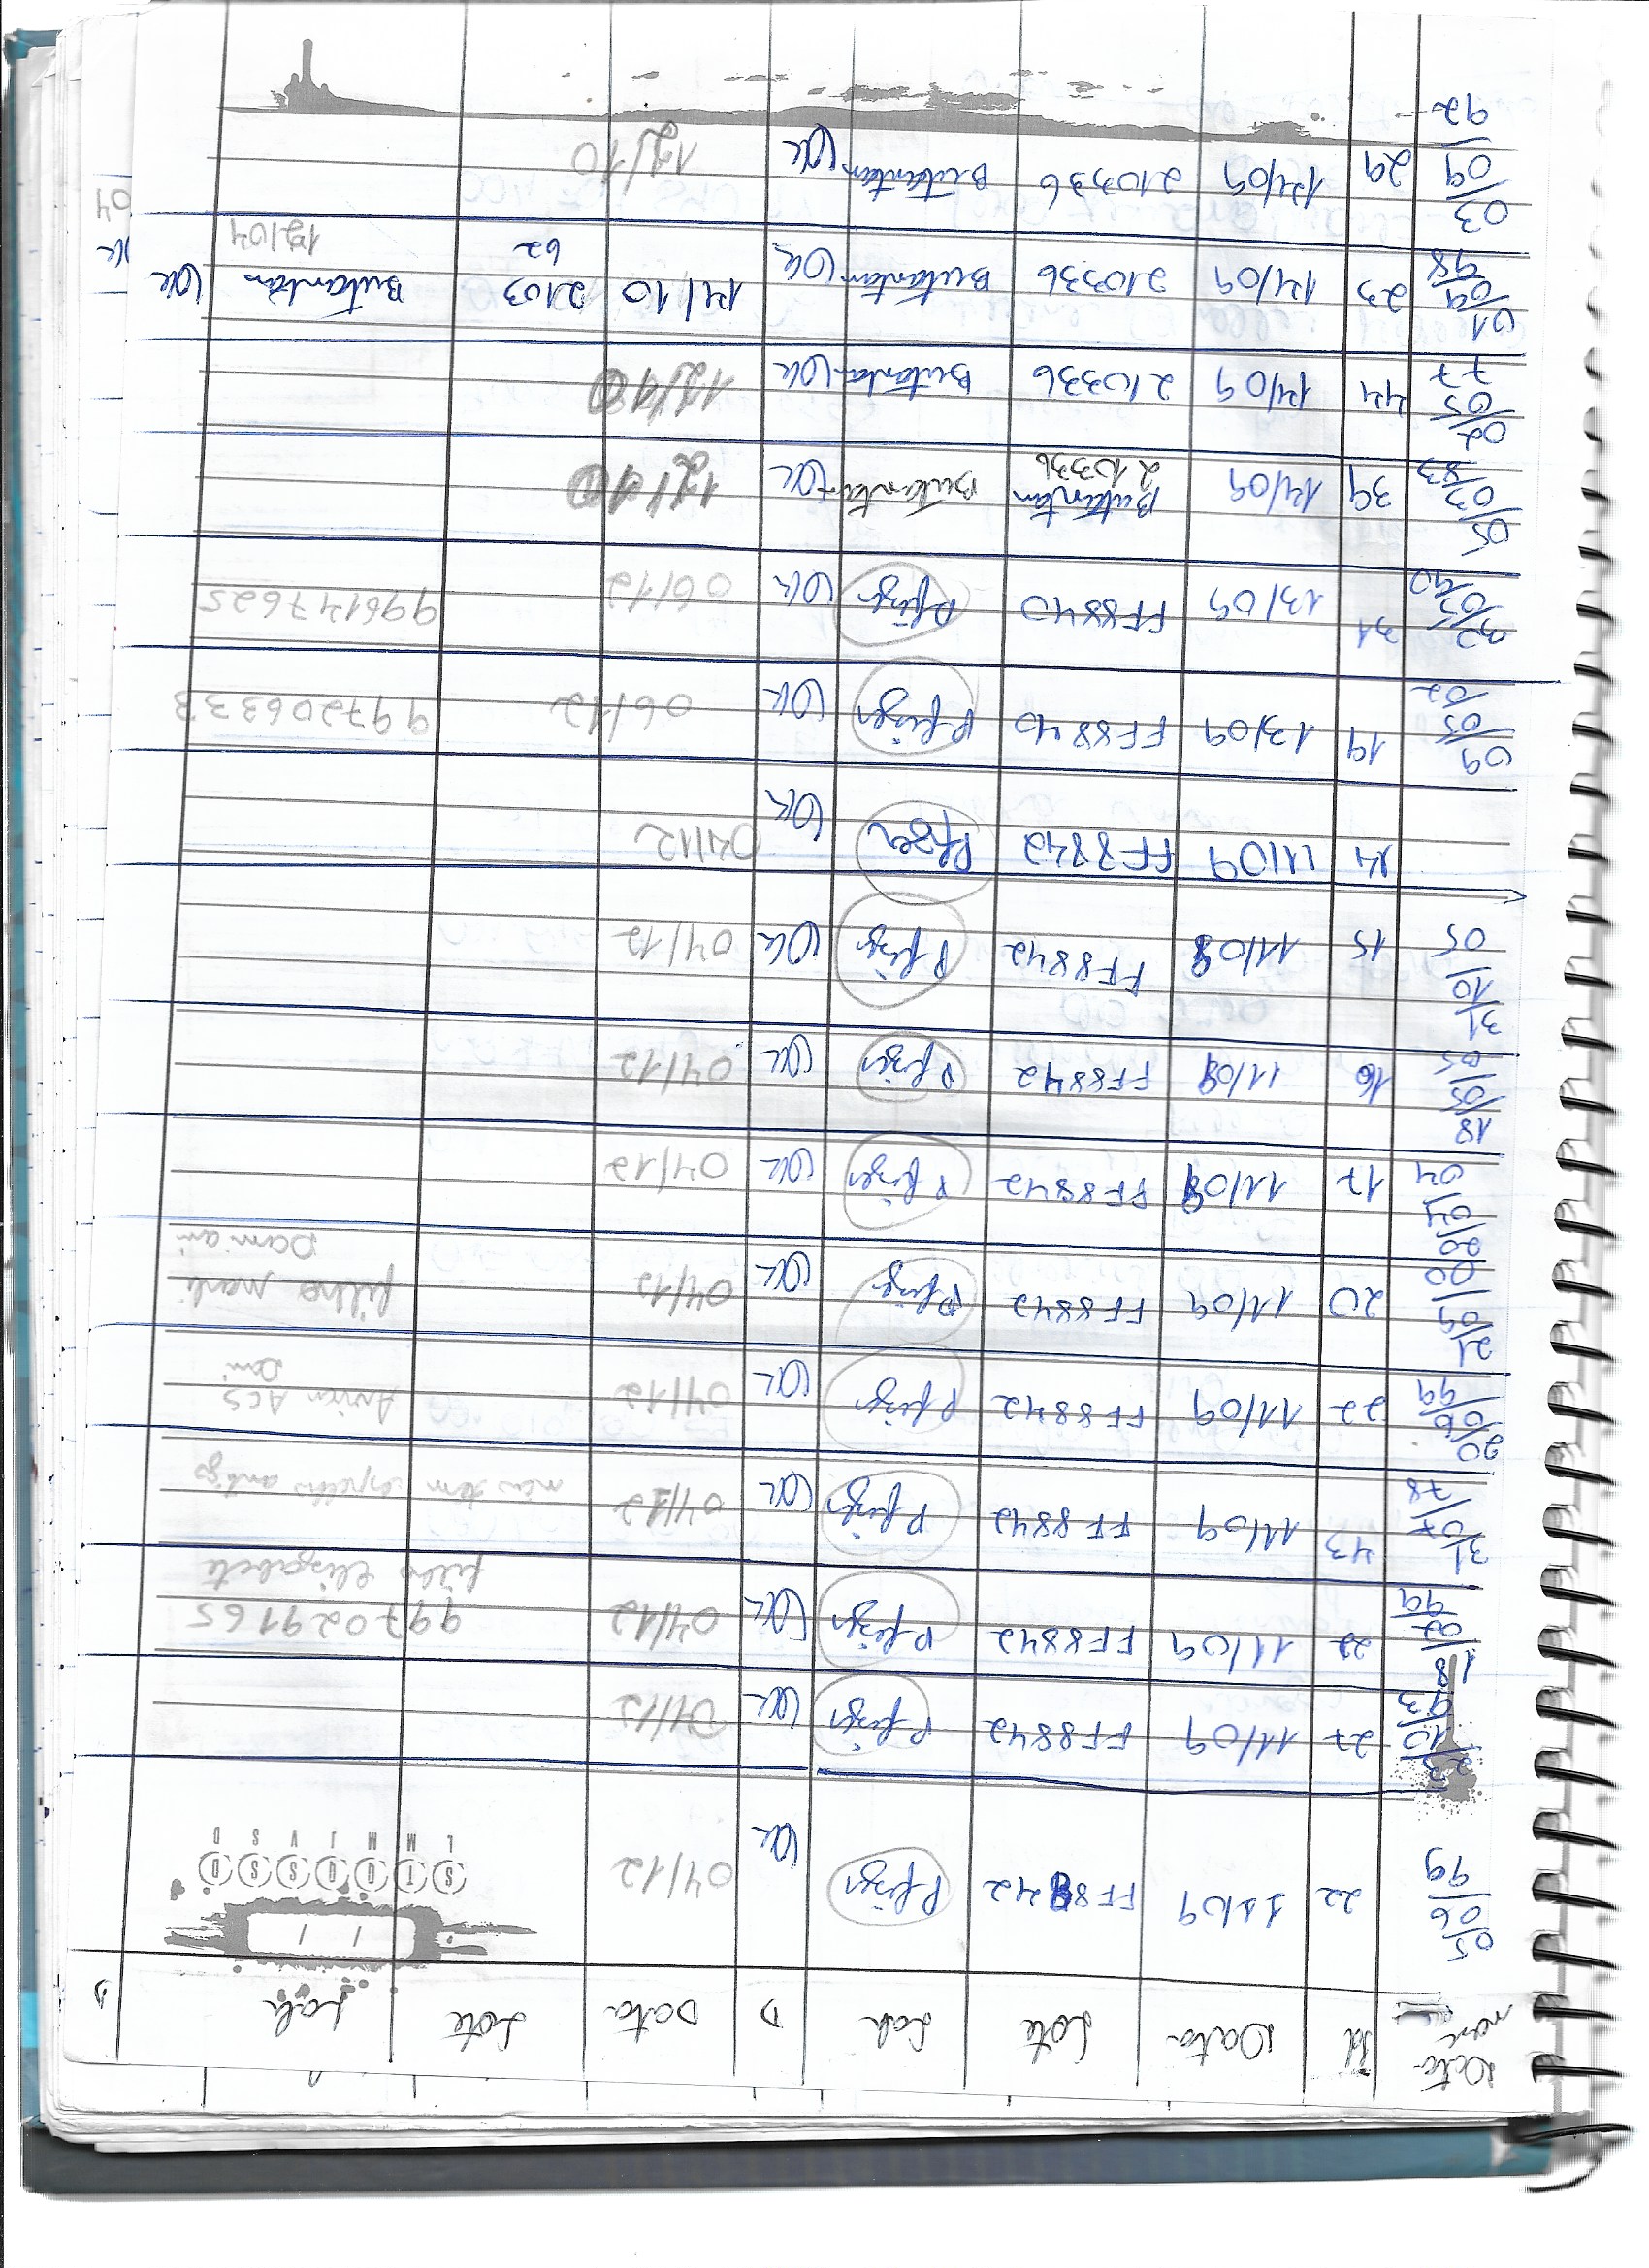 Data nasc Id Data Lote Lab D Data Lote Lab D
S T Q Q S S D
L M M J V S D
05/06/99 22 11/09 FF8842 Pfizer OK 04/12
23/10/93 27 11/09 FF8842 Pfizer OK 04/12
18/02/99 22 11/09 FF8842 Pfizer OK 04/12 997029165
filho Elizabeti
31/07/78 43 11/09 FF8842 Pfizer OK 04/12 tem antigo
20/06/99 22 11/09 FF8842 Pfizer OK 04/12 ACS
Dani
21/09/00 20 11/09 FF8842 Pfizer OK 04/12 filho marli
Damiani
20/04/04 17 11/09 FF8842 Pfizer OK 04/12
18/05/05 16 11/09 FF8842 Pfizer OK 04/12
31/10/05 15 11/09 FF8842 Pfizer OK 04/12
14 11/09 FF8842 Pfizer OK 04/12
09/05/02 19 13/09 FF8840 Pfizer OK 06/12 997206333
31 13/09 FF8840 Pfizer OK 06/12 996147625
05/03/83 39 14/09 Butantan 210336 Butantan OK 12/10
02/05/77 44 14/09 210336 Butantan OK 12/10
01/09/98 23 14/09 210336 Butantan OK 14/10 2103 62 Butantan OK
12/04
03/09/92 29 14/09 210336 Butantan OK 12/10